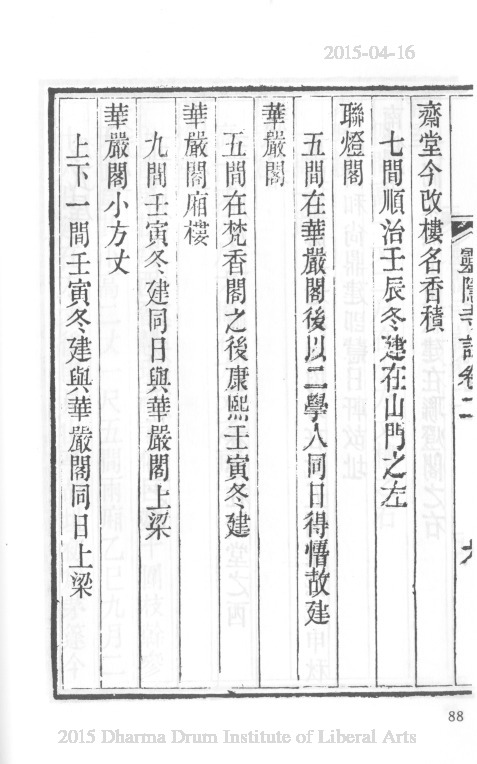 2015-04-16
靈隱寺誌卷二
齋堂今改樓名香積
七間順治壬辰冬建在山門之左
聯燈閣
五間在華嚴閣後以二學人同日得悟故建
華嚴閣
五間在梵香閣之後康熙壬寅冬建
華嚴閣廂樓
九間壬寅冬建同日與華嚴閣上梁
華嚴閣小方丈
上下一間壬寅冬建與華嚴閣同日上梁
88
2015 Dharma Drum Institute of Liberal Arts